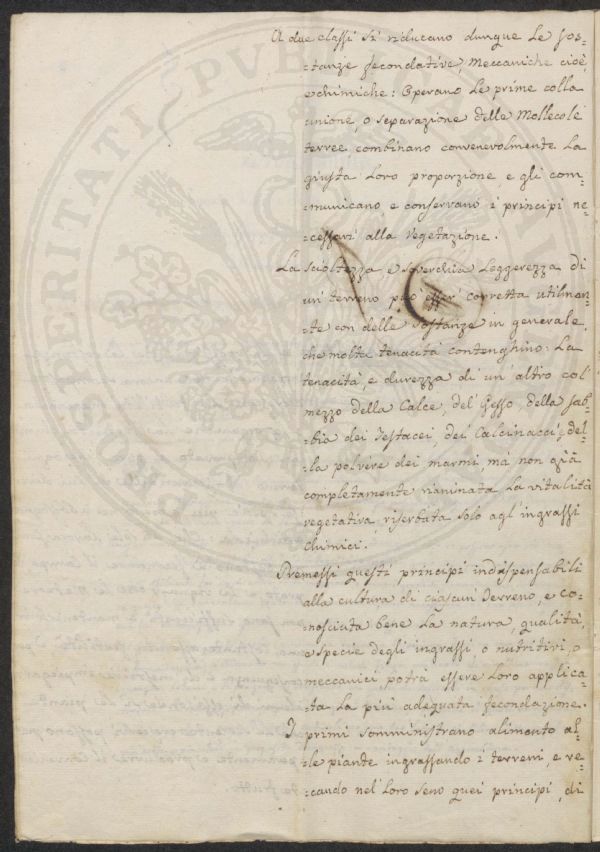 A due classi si riducano dunque le sos=
=tanze fecondative, Meccaniche cioè,
e chimiche: Operano le prime colla
unione, o separazione delle Mollecole
terree, combinano convenevolmente la
giusta loro proporzione, e gli com=
=municano e conservano i principi ne=
=cessari alla vegetazione.
La scioltezza e soverchia leggerezza di
un' terreno può esser' corretta utilmen=
=te con delle sostanze in generale,
che molta tenacità contenghino: La
tenacità, e durezza di un' altro col
mezzo della Calce, del Gesso, della sab=
=bia dei Testacei, dei Calcinacci, del=
=la polvere dei marmi, mà non già
completamente rianimata la vitalità
vegetativa riserbata solo agl'ingrassi
chimici.
Premessi questi principi indispensabili
alla cultura di ciascun' Terreno, e co=
=nosciuta bene la natura, qualità,
o specie degli ingrassi, o nutritivi, o
meccanici, potrà essere loro applica=
=ta la più adequata fecondazione.
I primi somministrano alimento al=
=le piante ingrassando i terreni, e re=
=cando nel' loro seno quei principi, di
PROSPERITATI PVBLICAE